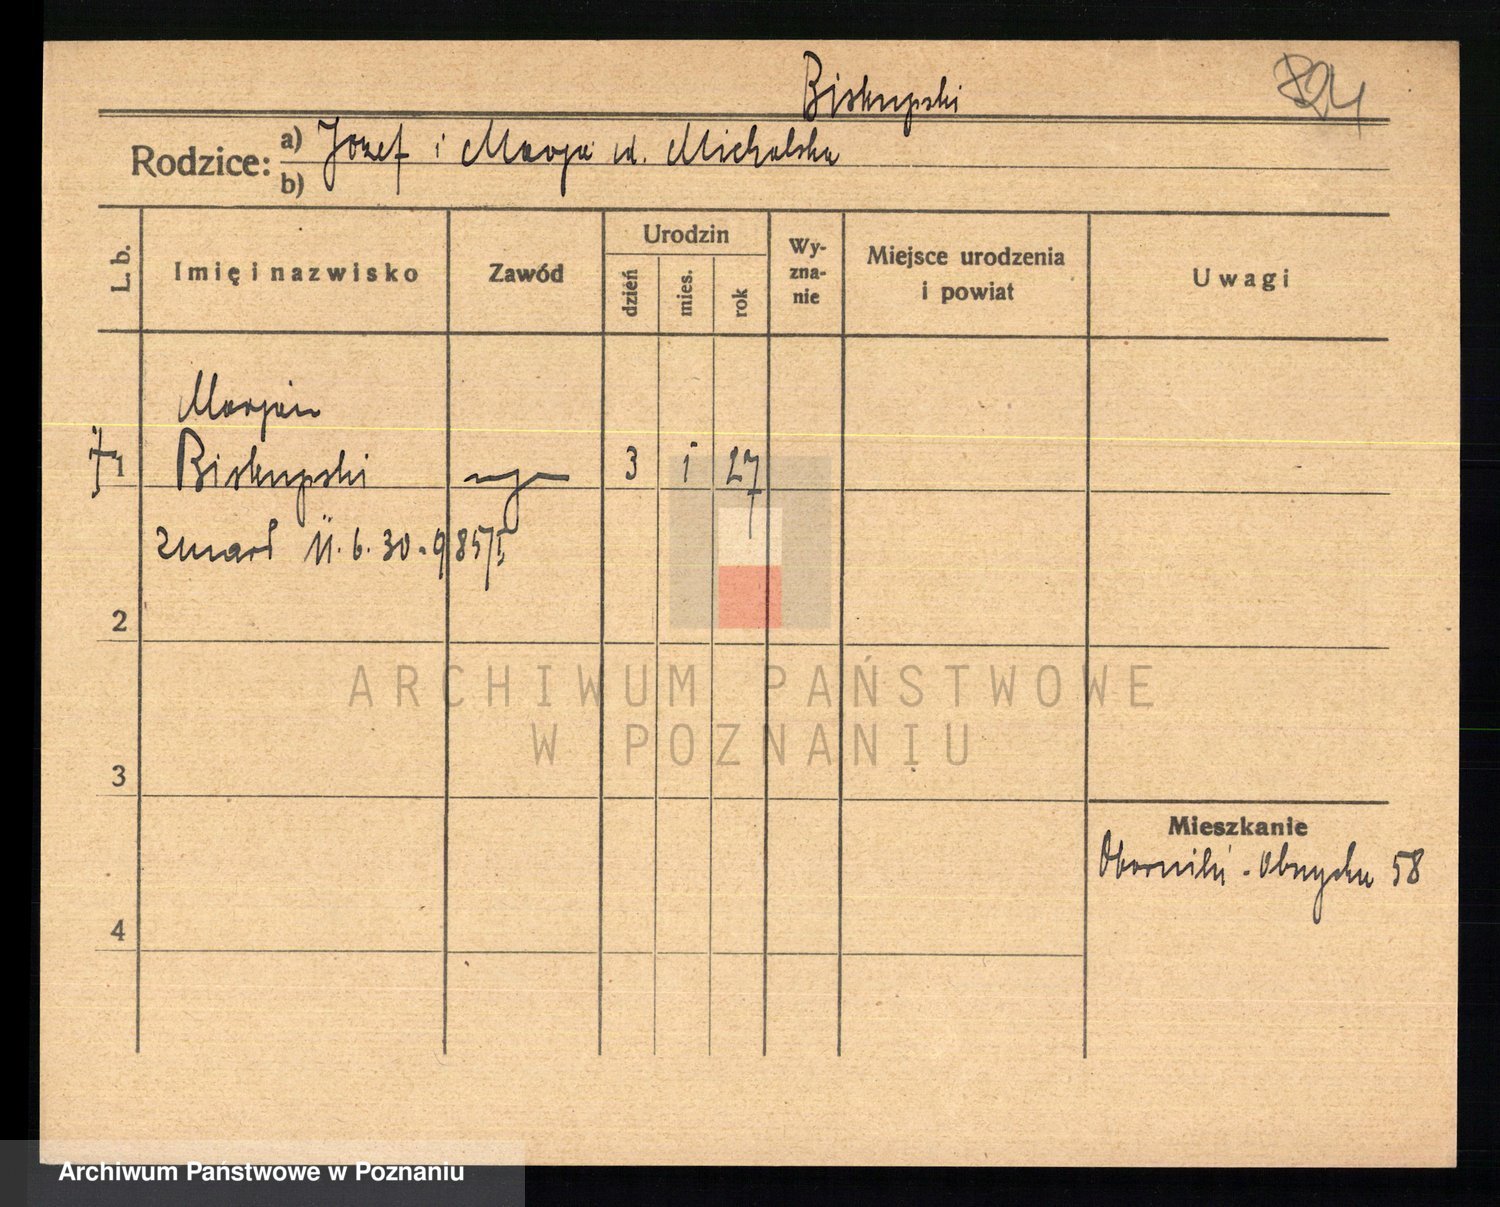 Biskupski
894
Rodzice:
a) Józef i Marja ur. Michalska
b)
L. b.
Imię i nazwisko
Zawód
Urodzin
dzień
mies.
rok
Wy-
zna-
nie
Miejsce urodzenia
i powiat
Uwagi
Marjan
1 Biskupski 3 1 27
zmarł 11. 6. 30 - 985/I
2
3
4
Mieszkanie
Oborniki - Obrzycka 58
ARCHIWUM PAŃSTWOWE
W POZNANIU
Archiwum Państwowe w Poznaniu